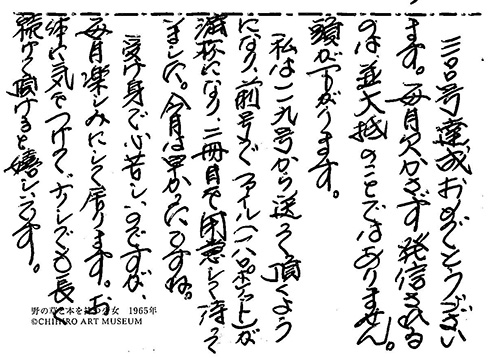 三〇号達成おめでとうござい
ます。毎月欠かさず発信される
のは並大抵のことではありません。
頭が下がります。
私は一九号から送って頂くよう
になり、前号までファイルが
満杯になり、二冊目を用意して待って
いました。今月は早かったですね。
受け身で心苦しいのですが、
毎月楽しみにして居ります。お
体に気をつけて、少しでも長
続けて頂けると嬉しいです。
野の草と本を 少女 1965年
©CHIHIRO ART MUSEUM